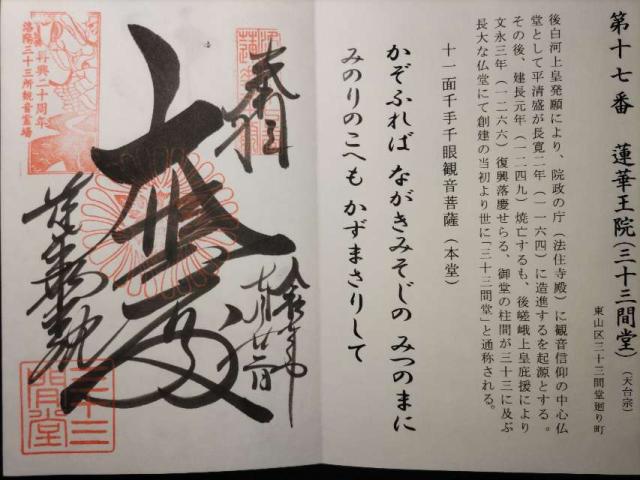 第十七番 蓮華王院(三十三間堂)(天台宗)
東山区三十三間堂廻り町
後白河上皇発願により、院政の庁(法住寺殿)に観音信仰の中心仏
堂として平清盛が長寛二年(一一六四)に造進するを起源とする。
その後、建長元年(一二四九)焼亡するも、後嵯峨上皇庇援により
文永三年(一二六六)復興落慶せらる、御堂の柱間が三十三に及ぶ
長大な仏堂にて創建の当初より世に「三十三間堂」と通称される。
十一面千手千眼観音菩薩(本堂)
かぞふれば ながきみそじの みつのまに
みのりのこへも かずまさりして
奉拝
大悲殿
蓮華王院
再興二十周年
洛陽三十三所観音霊場
三十三
間堂